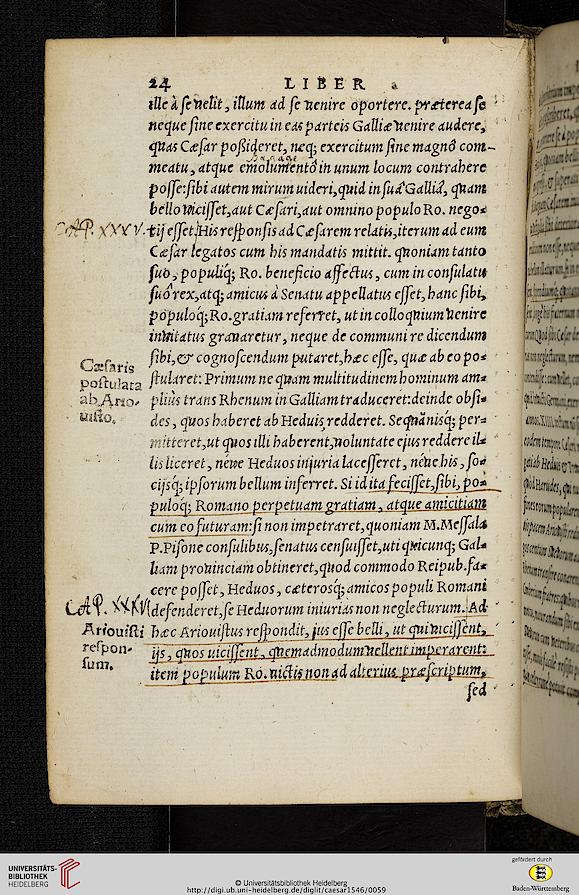 24 LIBER
ille à se uelit, illum ad se uenire oportere. præterea se
neque sine exercitu in eas parteis Galliæ uenire audere,
quas Cæsar poßideret, neq; exercitum sine magno com-
meatu, atque emolumento in unum locum contrahere
posse: sibi autem mirum uideri, quid in sua Gallia, quam
bello uicisset, aut Cæsari, aut omnino populo Ro. nego-
CAP. XXXV.
tij esset. His responsis ad Cæsarem relatis, iterum ad eum
Cæsar legatos cum his mandatis mittit. quoniam tanto
suo, populiq; Ro. beneficio affectus, cum in consulatu
suo rex, atq; amicus à Senatu appellatus esset, hanc sibi,
populoq; Ro. gratiam referret, ut in colloquium uenire
inuitatus grauaretur, neque de communi re dicendum
sibi, & cognoscendum putaret, hæc esse, quæ ab eo po-
Cæsaris
postulata
ab Ario-
uisto.
stularet: Primum ne quam multitudinem hominum am-
plius trans Rhenum in Galliam traduceret: deinde obsi-
des, quos haberet ab Heduis, redderet. Sequanisq; per-
mitteret, ut quos illi haberent, uoluntate ejus reddere il-
lis liceret, neue Heduos iniuria lacesseret, neue his, so-
cijsq; ipsorum bellum inferret. Si id ita fecisset, sibi, po-
puloq; Romano perpetuam gratiam, atque amicitiam
cum eo futuram: si non impetraret, quoniam M. Messala
P. Pisone consulibus, senatus censuisset, uti quicunq; Gal-
liam prouinciam obtineret, quod commodo Reipub. fa-
cere posset, Heduos, cæterosq; amicos populi Romani
CAP. XXXVI
defenderet, se Heduorum iniurias non neglecturum. Ad
Ariouisti
respon-
sum.
hæc Ariouistus respondit, jus esse belli, ut qui uicissent,
ijs, quos uicissent, quemadmodum uellent imperarent:
item populum Ro. uictis non ad alterius præscriptum,
sed
UNIVERSITÄTS-
BIBLIOTHEK
HEIDELBERG
© Universitätsbibliothek Heidelberg
http://digi.ub.uni-heidelberg.de/diglit/caesar1546/0059
gefördert durch
Baden-Württemberg